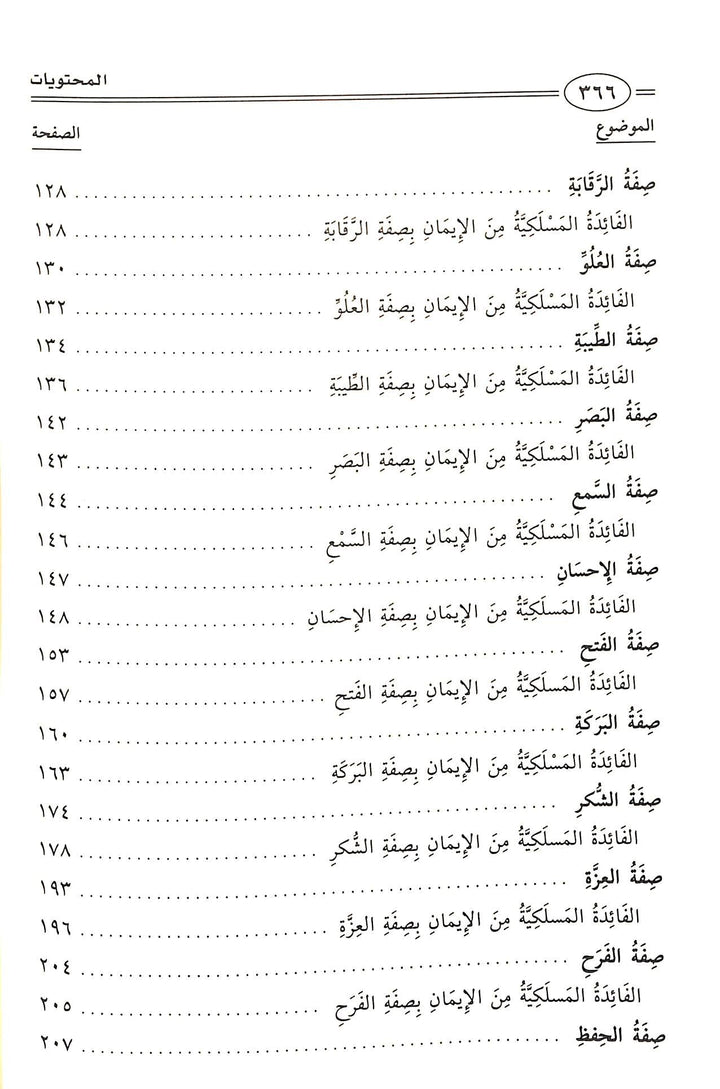 ٣٦٦ المحتويات
الموضوع الصفحة
صِفَةُ الرَّقَابَةِ ........ ١٢٨
الفَائِدَةُ المَسْلَكِيَّةُ مِنَ الإِيمَانِ بِصِفَةِ الرَّقَابَةِ ........ ١٢٨
صِفَةُ العُلُوِّ ........ ١٣٠
الفَائِدَةُ المَسْلَكِيَّةُ مِنَ الإِيمَانِ بِصِفَةِ العُلُوِّ ........ ١٣٢
صِفَةُ الطِّيبَةِ ........ ١٣٤
الفَائِدَةُ المَسْلَكِيَّةُ مِنَ الإِيمَانِ بِصِفَةِ الطِّيبَةِ ........ ١٣٦
صِفَةُ البَصَرِ ........ ١٤٢
الفَائِدَةُ المَسْلَكِيَّةُ مِنَ الإِيمَانِ بِصِفَةِ البَصَرِ ........ ١٤٣
صِفَةُ السَّمعِ ........ ١٤٤
الفَائِدَةُ المَسْلَكِيَّةُ مِنَ الإِيمَانِ بِصِفَةِ السَّمْعِ ........ ١٤٦
صِفَةُ الإِحسَانِ ........ ١٤٧
الفَائِدَةُ المَسْلَكِيَّةُ مِنَ الإِيمَانِ بِصِفَةِ الإِحسَانِ ........ ١٤٨
صِفَةُ الفَتحِ ........ ١٥٣
الفَائِدَةُ المَسلَكِيَّةُ مِنَ الإِيمَانِ بِصِفَةِ الفَتحِ ........ ١٥٧
صِفَةُ البَرَكَةِ ........ ١٦٠
الفَائِدَةُ المَسْلَكِيَّةُ مِنَ الإِيمَانِ بِصِفَةِ البَرَكَةِ ........ ١٦٣
صِفَةُ الشُّكرِ ........ ١٧٤
الفَائِدَةُ المَسلَكِيَّةُ مِنَ الإِيمَانِ بِصِفَةِ الشُّكرِ ........ ١٧٨
صِفَةُ العِزَّةِ ........ ١٩٣
الفَائِدَةُ المَسلَكِيَّةُ مِنَ الإِيمَانِ بِصِفَةِ العِزَّةِ ........ ١٩٦
صِفَةُ الفَرَحِ ........ ٢٠٤
الفَائِدَةُ المَسلَكِيَّةُ مِنَ الإِيمَانِ بِصِفَةِ الفَرَحِ ........ ٢٠٥
صِفَةُ الحِفظِ ........ ٢٠٧